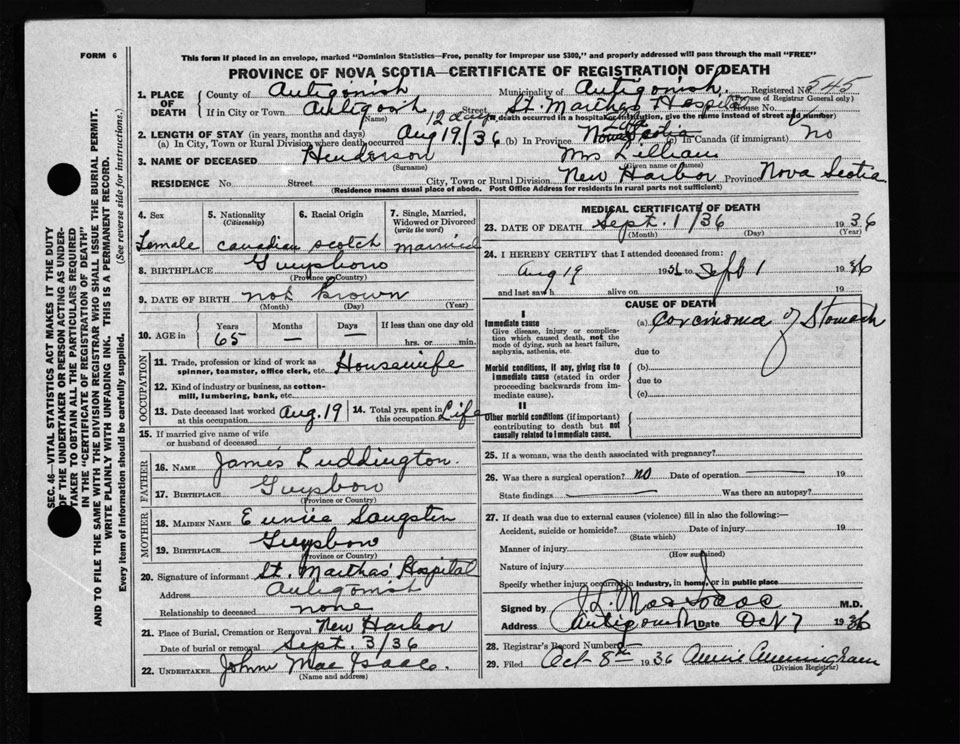 FORM 6
This form if placed in an envelope, marked "Dominion Statistics—Free, penalty for improper use $300," and properly addressed will pass through the mail "FREE"
PROVINCE OF NOVA SCOTIA—CERTIFICATE OF REGISTRATION OF DEATH
1. PLACE OF DEATH County of Antigonish Municipality of Antigonish Registered No. 545
(For use of Registrar General only)
If in City or Town Antigosh Street St. Marthas Hospital House No.
(Name) 12 days (If death occurred in a hospital or institution, give the name instead of street and number)
2. LENGTH OF STAY (in years, months and days)
(a) In City, Town or Rural Division where death occurred Aug 19/36 (b) In Province Nova Scotia (c) In Canada (if immigrant) no
3. NAME OF DECEASED Henderson Mrs Lillian
(Surname) (Given name or names)
RESIDENCE No. Street City, Town or Rural Division New Harbor Province Nova Scotia
(Residence means usual place of abode. Post Office Address for residents in rural parts not sufficient)
4. Sex 5. Nationality (Citizenship) 6. Racial Origin 7. Single, Married, Widowed or Divorced (write the word)
Female Canadian Scotch married
8. BIRTHPLACE Guysboro
(Province or Country)
9. DATE OF BIRTH not known
(Month) (Day) (Year)
10. AGE in Years Months Days If less than one day old
65 — — hrs. or min.
OCCUPATION
11. Trade, profession or kind of work as spinner, teamster, office clerk, etc. Housewife
12. Kind of industry or business, as cotton-mill, lumbering, bank, etc.
13. Date deceased last worked at this occupation Aug. 19 14. Total yrs. spent in this occupation Life
15. If married give name of wife or husband of deceased
FATHER
16. NAME James Luddington.
17. BIRTHPLACE Guysboro
(Province or Country)
MOTHER
18. MAIDEN NAME Eunice Sangster
19. BIRTHPLACE Guysboro
(Province or Country)
20. Signature of informant St. Marthas Hospital
Address Antigonish
Relationship to deceased none
21. Place of Burial, Cremation or Removal New Harbor
Date of burial or removal Sept. 3/36
22. UNDERTAKER John MacIsaac.
(Name and address)
MEDICAL CERTIFICATE OF DEATH
23. DATE OF DEATH Sept. 1/36 1936
(Month) (Day) (Year)
24. I HEREBY CERTIFY that I attended deceased from:
Aug 19 1936 to Sept 1 1936
and last saw h alive on 19
CAUSE OF DEATH
I
Immediate cause (a) Carcinoma of Stomach
Give disease, injury or complication which caused death, not the mode of dying, such as heart failure, asphyxia, asthenia, etc.
due to
Morbid conditions, if any, giving rise to immediate cause (stated in order proceeding backwards from immediate cause). (b)
due to
(c)
II
Other morbid conditions (if important) contributing to death but not causally related to immediate cause.
25. If a woman, was the death associated with pregnancy?
26. Was there a surgical operation? no Date of operation 19
State findings Was there an autopsy?
27. If death was due to external causes (violence) fill in also the following:—
Accident, suicide or homicide? Date of injury 19
(State which)
Manner of injury
(How sustained)
Nature of injury
Specify whether injury occurred in industry, in home, or in public place
Signed by M.D.
Address Antigonish Date Oct 7 1936
28. Registrar's Record Number
29. Filed Oct 8th 1936 Annie Cunningham
(Division Registrar)
SEC. 46—VITAL STATISTICS ACT MAKES IT THE DUTY
OF THE UNDERTAKER OR PERSON ACTING AS UNDER-
TAKER TO OBTAIN ALL THE PARTICULARS REQUIRED
IN THE "CERTIFICATE OF REGISTRATION OF DEATH"
AND TO FILE THE SAME WITH THE DIVISION REGISTRAR WHO SHALL ISSUE THE BURIAL PERMIT.
WRITE PLAINLY WITH UNFADING INK. THIS IS A PERMANENT RECORD.
Every item of Information should be carefully supplied. (See reverse side for instructions.)